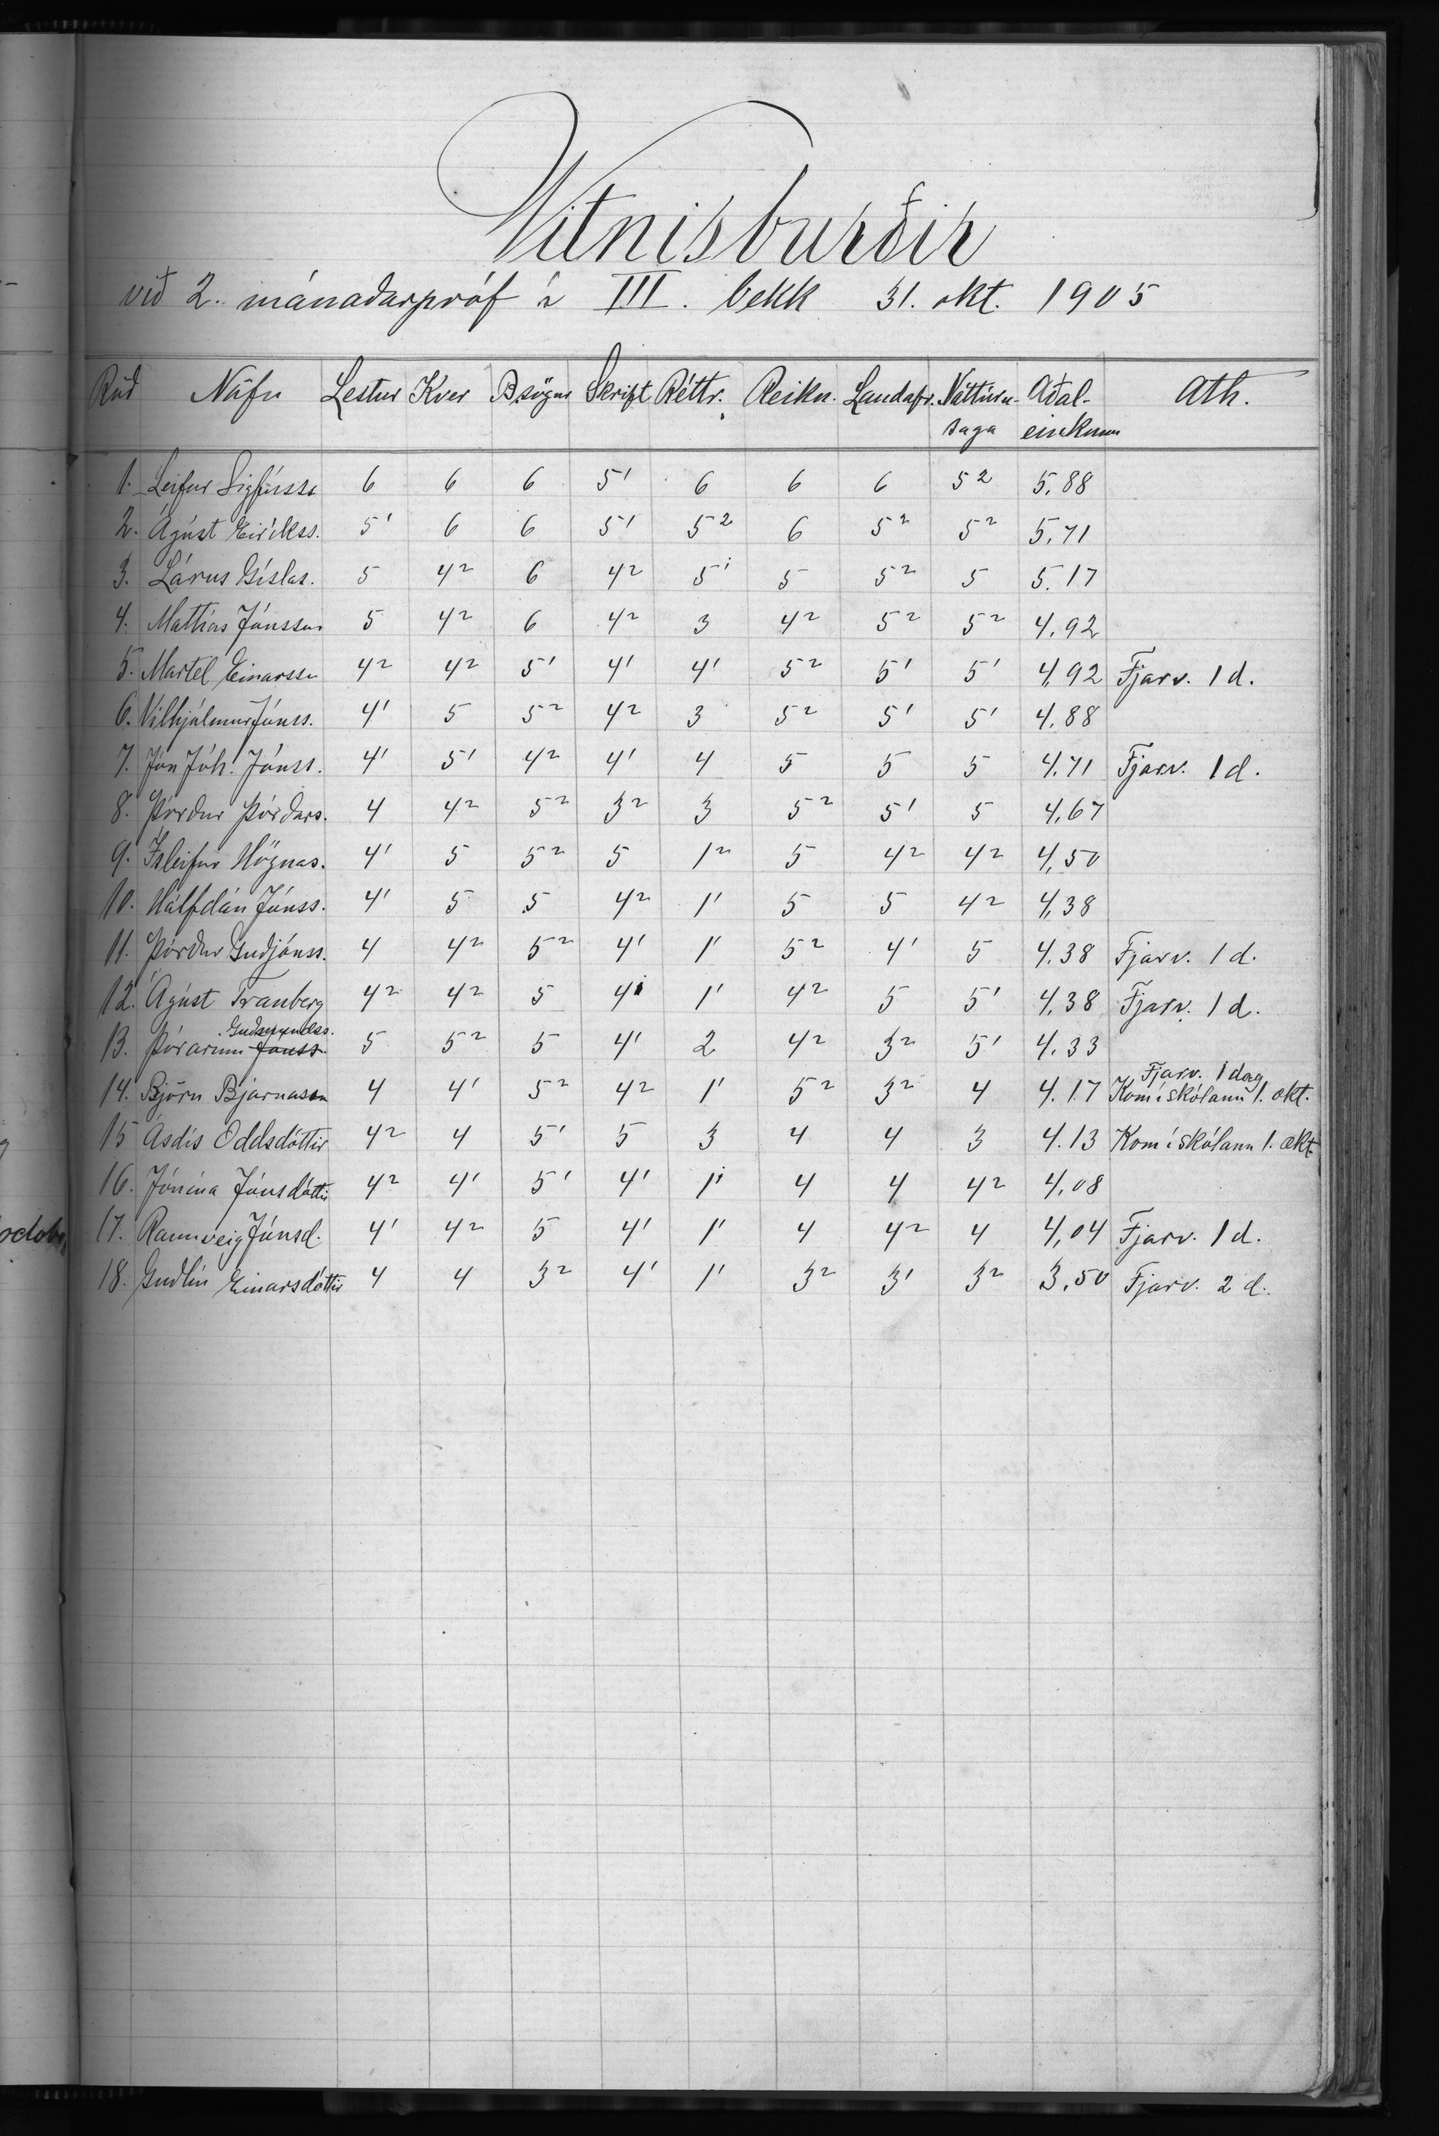 Vitnisburðir
við 2. mánaðarpróf í III. bekk 31. okt. 1905
Röð Nöfn Lestur Kver B.sögur Skrift Réttr. Reikn. Landafr. Náttúru- Aðal- Ath.
saga einkunn
1. Leifur Sigfússo 6 6 6 5¹ 6 6 6 5² 5,88
2. Ágúst Eiríkss. 5¹ 6 6 5¹ 5² 6 5² 5² 5,71
3. Lárus Gíslas. 5 4² 6 4² 5¹ 5 5² 5 5.17
4. Mathías Jónsson 5 4² 6 4² 3 4² 5² 5² 4,92
5. Martel Einarsson 4² 4² 5¹ 4¹ 4¹ 5² 5¹ 5¹ 4,92 Fjarv. 1 d.
6. Vilhjálmur Jónss. 4¹ 5 5² 4² 3 5² 5¹ 5¹ 4,88
7. Jón Jóh. Jónss. 4¹ 5¹ 4² 4¹ 4 5 5 5 4,71 Fjarv. 1 d.
8. Þórður Þórðars. 4 4² 5² 3² 3 5² 5¹ 5 4,67
9. Ísleifur Högnas. 4¹ 5 5² 5 1² 5 4² 4² 4,50
10. Hálfdán Jónss. 4¹ 5 5 4² 1¹ 5 5 4² 4,38
11. Þórður Guðjónss. 4 4² 5² 4¹ 1¹ 5² 4¹ 5 4.38 Fjarv. 1 d.
12. Ágúst Tranberg 4² 4² 5 4¹ 1¹ 4² 5 5¹ 4,38 Fjarv. 1 d.
Guðmundss.
13. Þórarinn Jónss. 5 5² 5 4¹ 2 4² 3² 5¹ 4.33
Fjarv. 1 dag
14. Björn Bjarnason 4 4¹ 5² 4² 1¹ 5² 3² 4 4.17 Kom í skólann 1. okt.
15 Ásdís Oddsdóttir 4² 4 5¹ 5 3 4 4 3 4.13 Kom í skólann 1. okt.
16. Jónína Jónsdóttir 4² 4¹ 5¹ 4¹ 1¹ 4 4 4² 4,08
17. Rannveig Jónsd. 4¹ 4² 5 4¹ 1¹ 4 4² 4 4,04 Fjarv. 1 d.
18. Guðlín Einarsdóttir 4 4 3² 4¹ 1¹ 3² 3¹ 3² 3,50 Fjarv. 2 d.